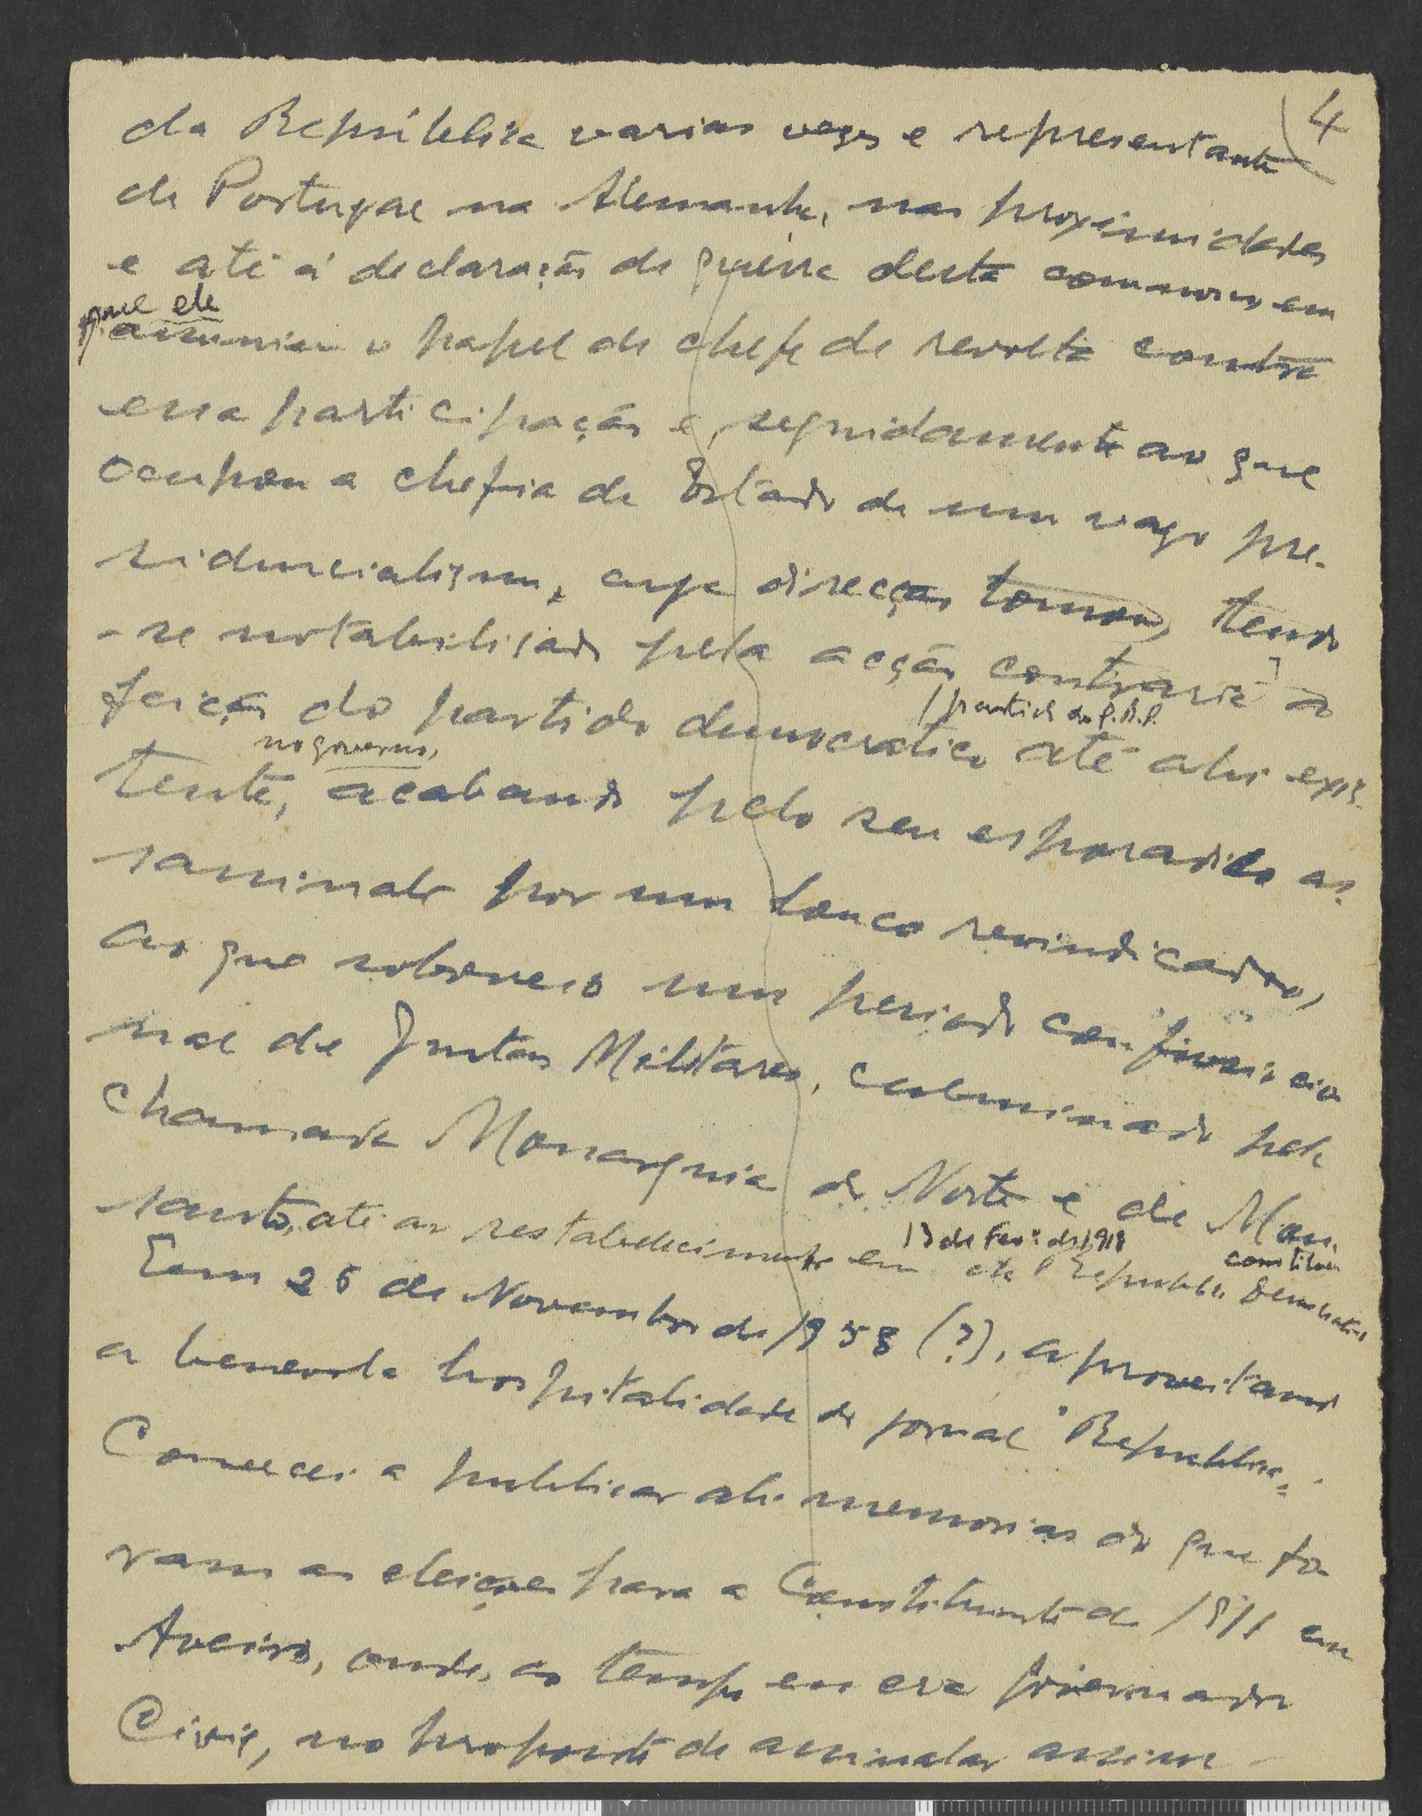 4
da República varias vezes e representante
de Portugal na Alemanha, nas proximidades
e até á declaração de guerra desta comnosco em
que ele
assumiu o papel de chefe de revolta contra
essa participação e, seguidamente ao que
ocupou a chefia de Estado de um vago pre-
sidencialismo, cuja direcção tomou, tendo
-se notabilisado pela acção contraria á
feição do partido democratico até ahi exis-
/ partido do P.R.P.
no governo,
tente, acabando pelo seu esporadico as-
sassinato por um louco revindicador,
ao que sobreveio um periodo
nal de Juntas Militares, culminado pela
chamada Monarquia do Norte e de Mon-
santo, até ao restabelecimento em 13 de Fevº de 1919 da Republica Democratica
Em 25 de Novembro de 1958 (?), aproveitando
a benevola hospitalidade do jornal "Republica"
Comecei a publicar ali memorias do que fo-
ram as eleições para a Constituinte de 1911 em
Aveiro, onde, ao tempo eu era Governador
Civil, no proposito de assinalar assim